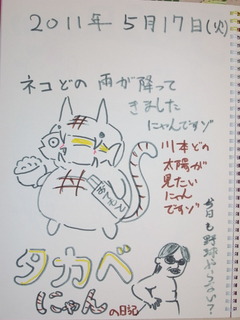 2011年 5月17日(火)
ネコどの 雨が降って
きました
にゃんですゾ
川本どの
太陽が
見たい
にゃん
ですゾ
今日も野球やらない?
タカベ
にゃん
の日記